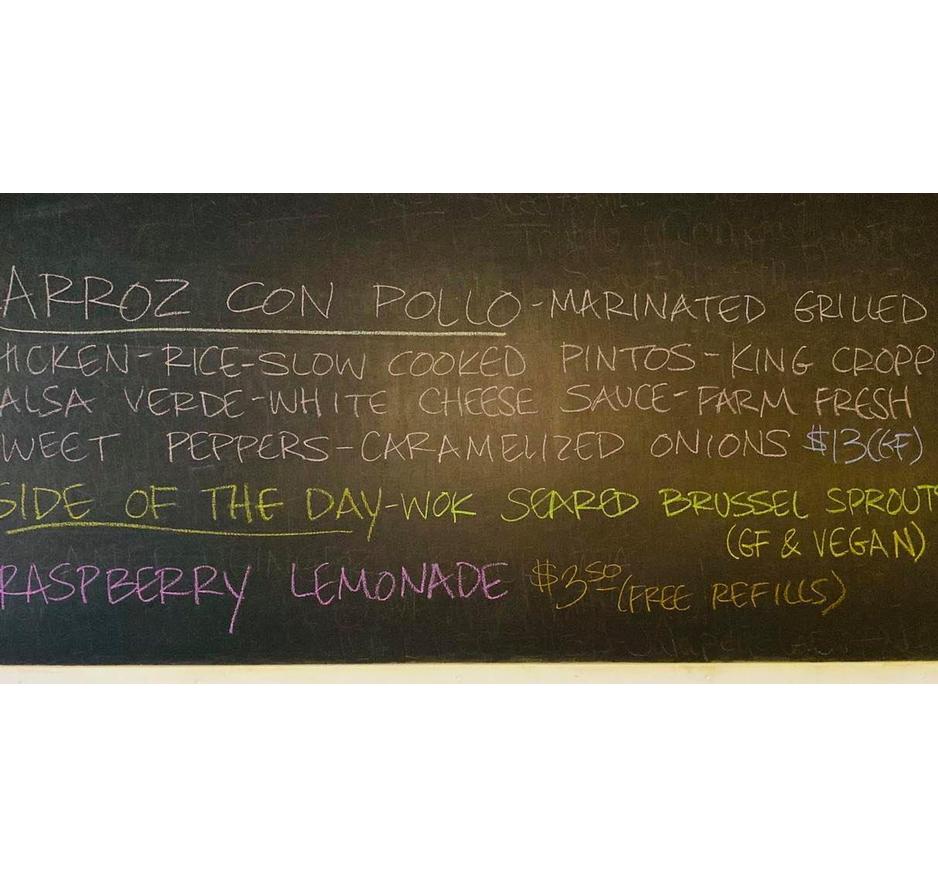 ARROZ CON POLLO-MARINATED GRILLED
HICKEN-RICE-SLOW COOKED PINTOS-KING CROPP
ALSA VERDE-WHITE CHEESE SAUCE-FARM FRESH
WEET PEPPERS-CARAMELIZED ONIONS $13(GF)
SIDE OF THE DAY-WOK SEARED BRUSSEL SPROUTS
(GF & VEGAN)
RASPBERRY LEMONADE $3.50 (FREE REFILLS)